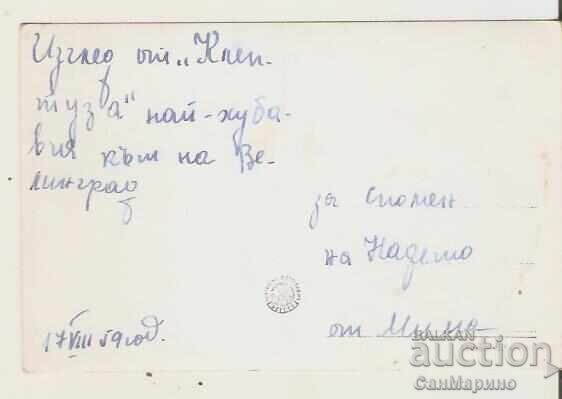 Изглед от „Клеп-
туза" най-хуба-
вия кът на Ве-
линград
за спомен
на Надето
от
17 VIII 59 год.
BALKAN
auction
СанМарино